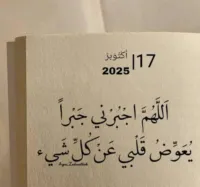 17| أكتوبر
2025
اَللَّهُمَّ اجْبُرْني جَبْراً
يُعَوِّضُ قَلْبي عَنْ كُلِّ شَيْء